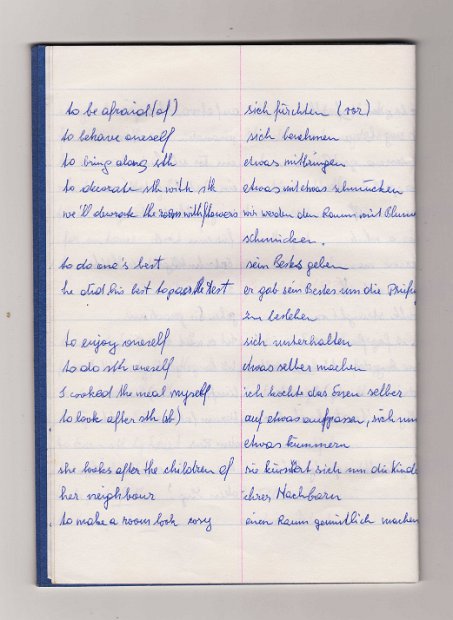 to be afraid (of) sich fürchten (vor)
to behave oneself sich benehmen
to bring along sth etwas mitbringen
to decorate sth with sth etwas mit etwas schmücken
we'll decorate the room with flowers wir werden den Raum mit Blume
schmücken.
to do one's best sein Bestes geben
he did his best to pass the test er gab sein Bestes um die Prüfu
zu bestehen
to enjoy oneself sich unterhalten
to do sth oneself etwas selber machen
I cooked the meal myself ich kochte das Essen selber
to look after sth (sb) auf etwas aufpassen, sich um
etwas kümmern
she looks after the children of sie kümmert sich um die Kinde
her neighbour ihres Nachbarn
to make a room look cosy einen Raum gemütlich machen